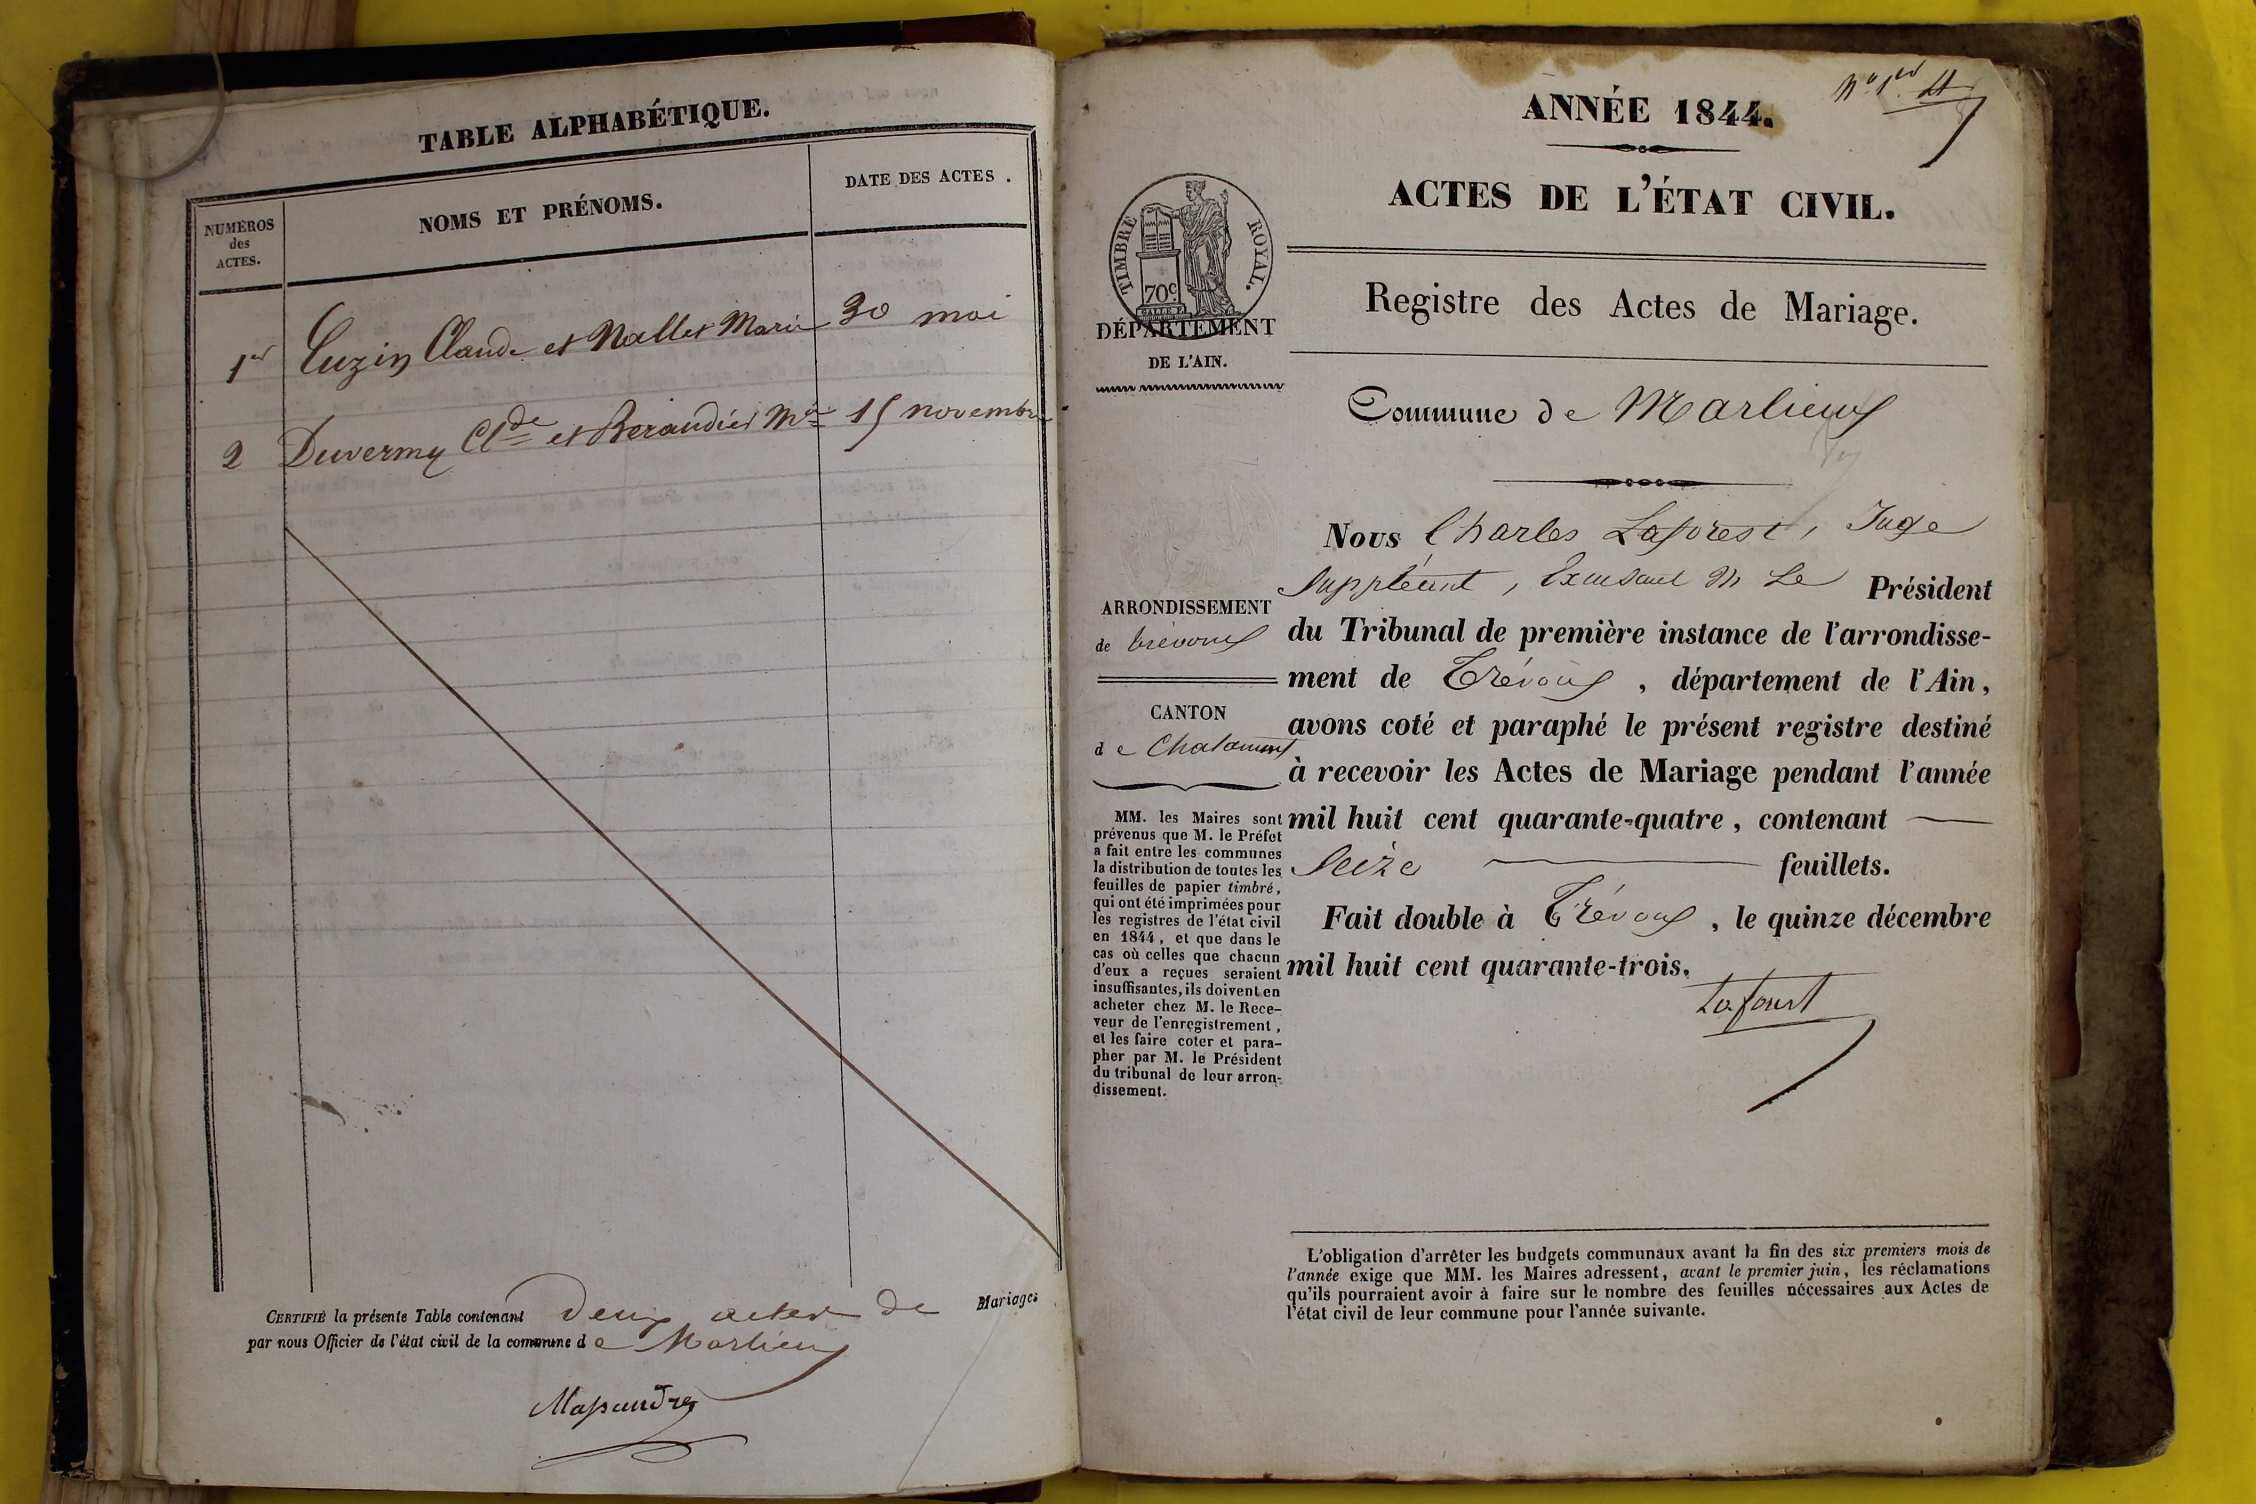 TABLE ALPHABÉTIQUE.
NUMÉROS
des
ACTES.
NOMS ET PRÉNOMS.
DATE DES ACTES.
1er Cuzin Claude et Nallet Marie 30 mai
2 Duvermy Clde et Beraudier Mie 15 novembre
CERTIFIÉ la présente Table contenant deux actes de Mariages
par nous Officier de l'état civil de la commune de Marlieux
N° 1er
ANNÉE 1844.
ACTES DE L'ÉTAT CIVIL.
TIMBRE ROYAL.
70c
DÉPARTEMENT
DE L'AIN.
Registre des Actes de Mariage.
Commune de Marlieux
ARRONDISSEMENT
de trévoux
CANTON
de Chalamont
MM. les Maires sont
prévenus que M. le Préfet
a fait entre les communes
la distribution de toutes les
feuilles de papier timbré,
qui ont été imprimées pour
les registres de l'état civil
en 1844, et que dans le
cas où celles que chacun
d'eux a reçues seraient
insuffisantes, ils doivent en
acheter chez M. le Rece-
veur de l'enregistrement,
et les faire coter et para-
pher par M. le Président
du tribunal de leur arron-
dissement.
Nous Charles Laforest, Juge
Suppléant, Excusant M Le Président
du Tribunal de première instance de l'arrondisse-
ment de Trévoux, département de l'Ain,
avons coté et paraphé le présent registre destiné
à recevoir les Actes de Mariage pendant l'année
mil huit cent quarante-quatre, contenant
Seize feuillets.
Fait double à Trévoux, le quinze décembre
mil huit cent quarante-trois.
Laforest
L'obligation d'arrêter les budgets communaux avant la fin des six premiers mois de
l'année exige que MM. les Maires adressent, avant le premier juin, les réclamations
qu'ils pourraient avoir à faire sur le nombre des feuilles nécessaires aux Actes de
l'état civil de leur commune pour l'année suivante.